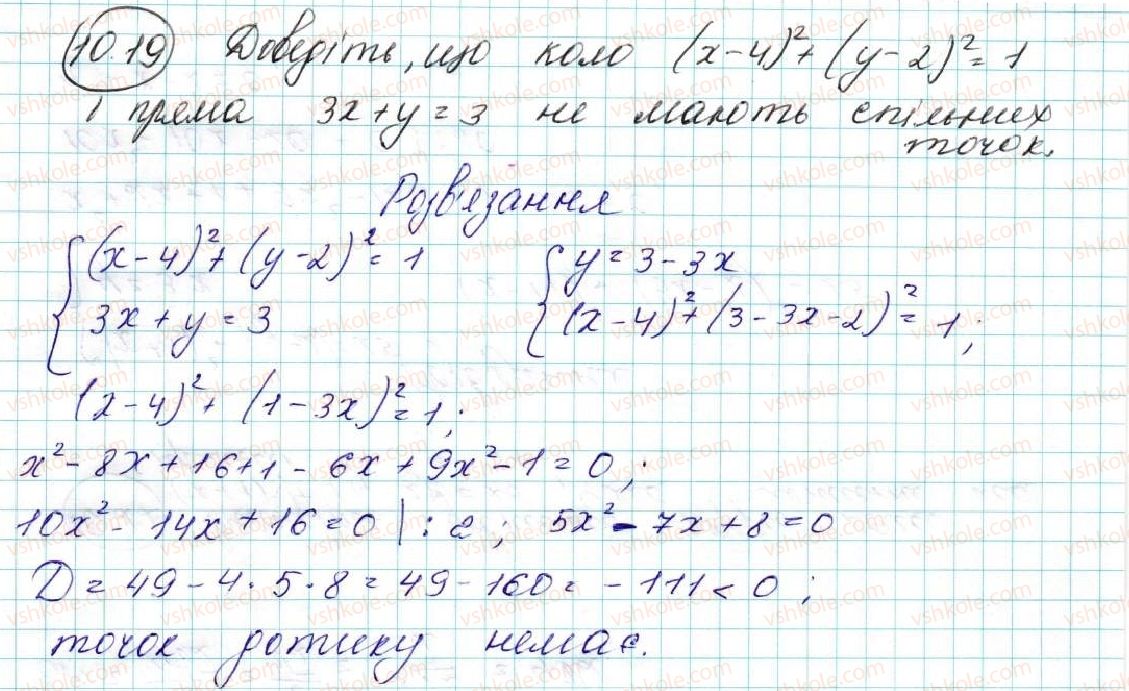 10.19 Доведіть, що коло (x-4)²+(y-2)²=1
і пряма 3x+y=3 не мають спільних
точок.
Розв'язання
{(x-4)²+(y-2)²=1 {y=3-3x
3x+y=3 (x-4)²+(3-3x-2)²=1;
(x-4)²+(1-3x)²=1;
x²-8x+16+1-6x+9x²-1=0;
10x²-14x+16=0|:2; 5x²-7x+8=0
D=49-4·5·8=49-160=-111<0;
точок дотику немає.